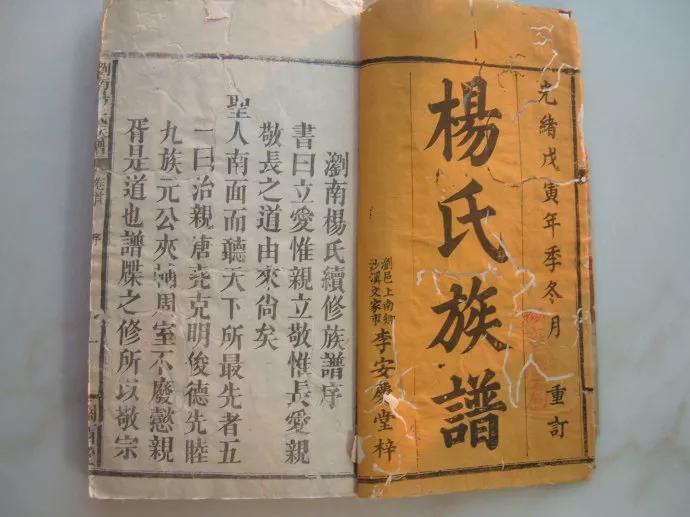 光緒戊寅年季冬月重訂
楊氏族譜
瀏邑上南鄉
沙溪文家市
李安慶堂梓
瀏南楊氏續修族譜序
書曰立愛惟親立敬惟長愛親
敬長之道由來尚矣
聖人南面而聽天下所最先者五
一曰治親唐堯克明俊德先睦
九族元公夾輔周室不廢懿親
胥是道也譜牒之修所以敬宗
卷首
序